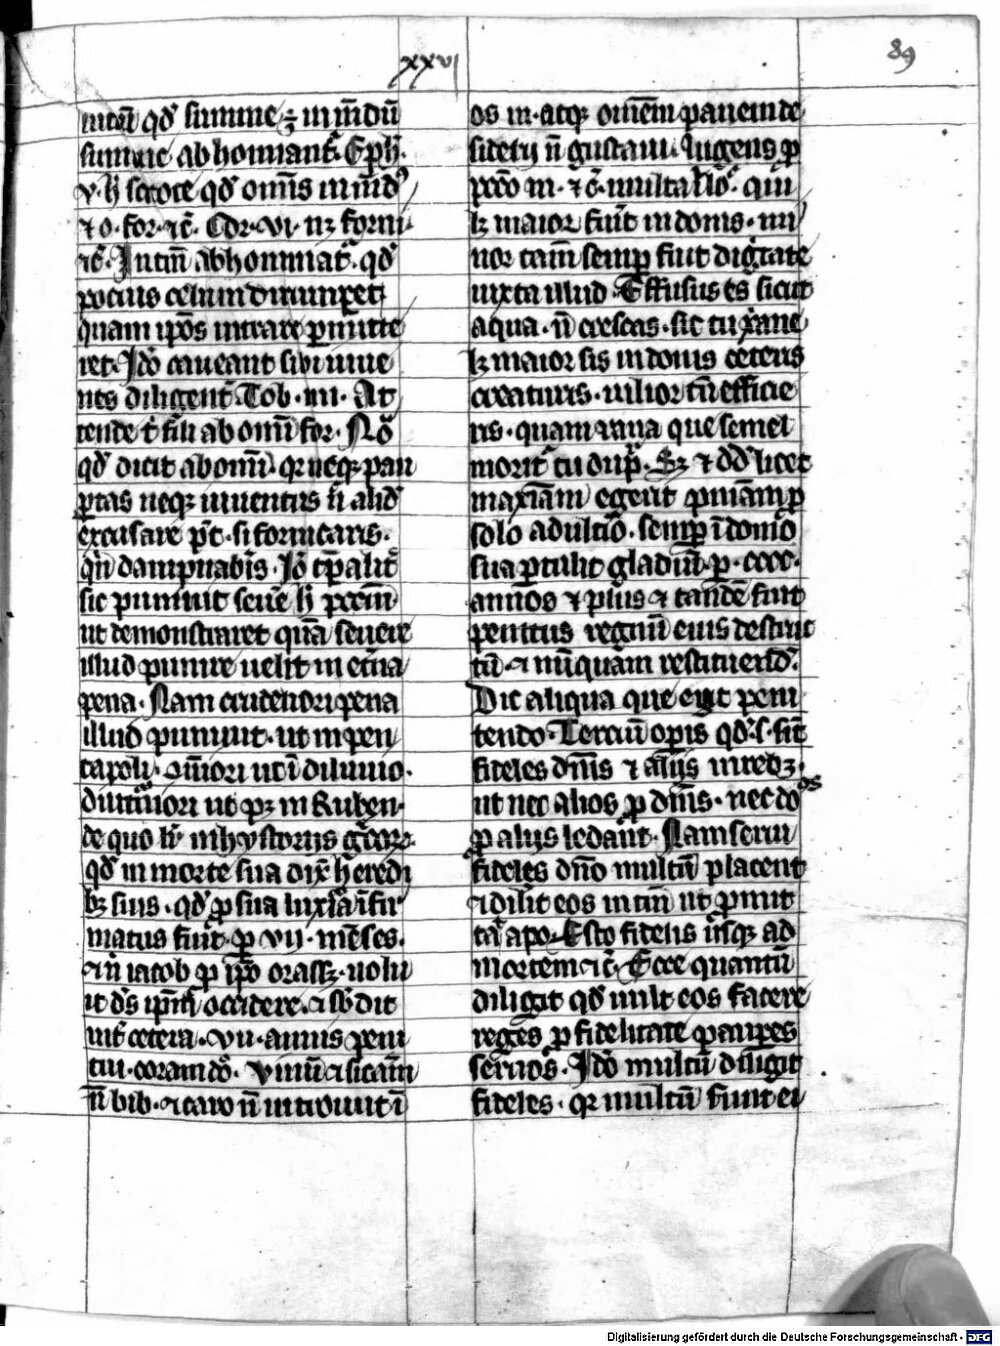 xxvi
89
mtm̄ qd' summe ⁊ inm̄dū
summe abhominant᷑. Eph̄.
v. h̄ scitote qd' omīs inm̄d⁹
⁊ o. for. ⁊c̄. Cor. vi. nꝫ forni
⁊c̄. Intm̄ abhominat᷑. qd'
pocius celum dirumperet
quam ip̄os intrare permitte
ret. Iđo caueant sibi iuue
nes diligent᷑. Tob. iiii. At
tende t' fili ab om̄i for. Nō
qd' dicit ab om̄i. qr neqꝫ pau
ꝑtas neqꝫ iuuentus h̄ aliđ
excusare pt̄. si fornicaris.
qn̄ dampnab'is. Iō tp̄alit᷑
sic puniuit seue h̄ pcc̄m
ut demonstraret quā seuere
illud punire uelit in et̄na
pena. Nam crudeliori pena
illud puniuit. ut in pen
tapoli. om̄iori ut ī diluuio.
diut̄niori ut pꝫ in Ruben.
de quo lr̄ in hystorijs
qd' in morte sua dix̄ heredi
bꝫ suis. qd' ꝓ sua luxīa īfir
matus fuit. ꝑ vii. mēses.
⁊ n̄ iacob ꝑ ip̄o orassꝫ. uolu
it d's ip̄m occidere. ⁊ sb'dit
int̄ cetera. vii. annis peni
tui coram dōo. vinū ⁊ sicām
n̄ bib. ⁊ caro n̄ introiuit ī
os m. atqꝫ omēm panem de
siderij n̄ gustaui. lugens ꝑ
pcc̄o m. ⁊ c̄. multa qui
lꝫ maior fuīt in donis. mi
nor tam̄ semꝑ fuit diḡtate
iuxta illud. Effusus es sicut
aqua. n̄ crescas. sic tu x̄ane
lꝫ maior sis in donis ceteris
creaturis. uilior tn̄ efficie
ris. quam rana que semel
morit᷑ tu dup'r. Sꝫ ⁊ dd' licet
maxīam egerit pn̄iam ꝓ
solo adult̄io. semꝑ ī domo
sua ꝑtulit gladiū. ꝑ. cccc.
annos ⁊ plus ⁊ tandē fuit
penitus regnū eius destruc
tū. ⁊ nūquam restituenđ.
Dic aliqua que egit peni
tendo. Terciū opis qd' s. sīt
fideles dn̄is ⁊ alijs in rebꝫ.
ut nec alios ꝓ dn̄is. nec do
os
ꝓ alijs ledant. Nam serui
fideles dn̄o multū placent
⁊ diligit eos in tm̄ ut ꝓmit
tat᷑ apo. Esto fidelis usqꝫ ad
mortem ⁊c̄. Ecce quantū
diligit qd' uult eos facere
reges ꝓ fidelitate pauꝑes
seruos. Iđo multū diligit
fideles. qr multū sunt ei
Digitalisierung gefördert durch die Deutsche Forschungsgemeinschaft - DFG